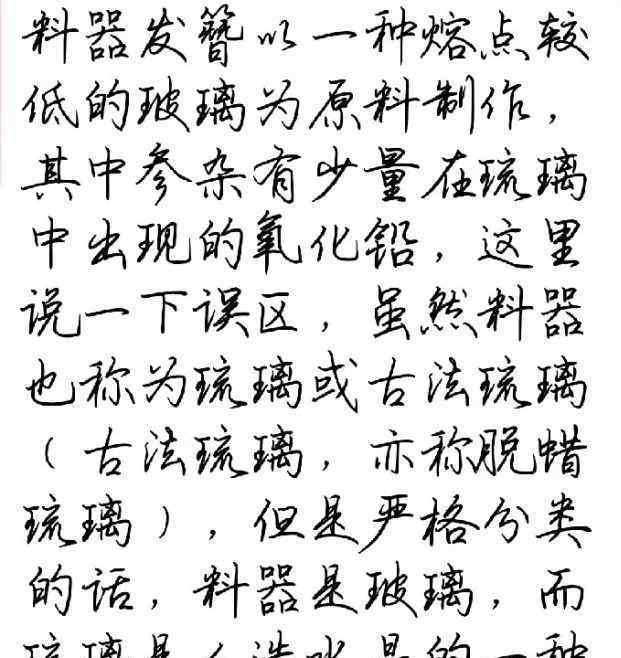 料器发簪以一种熔点较
低的玻璃为原料制作，
其中参杂有少量在琉璃
中出现的氧化铅，这里
说一下误区，虽然料器
也称为琉璃或古法琉璃
（古法琉璃，亦称脱蜡
琉璃），但是严格分类
的话，料器是玻璃，而
琉璃是人造水晶的一种